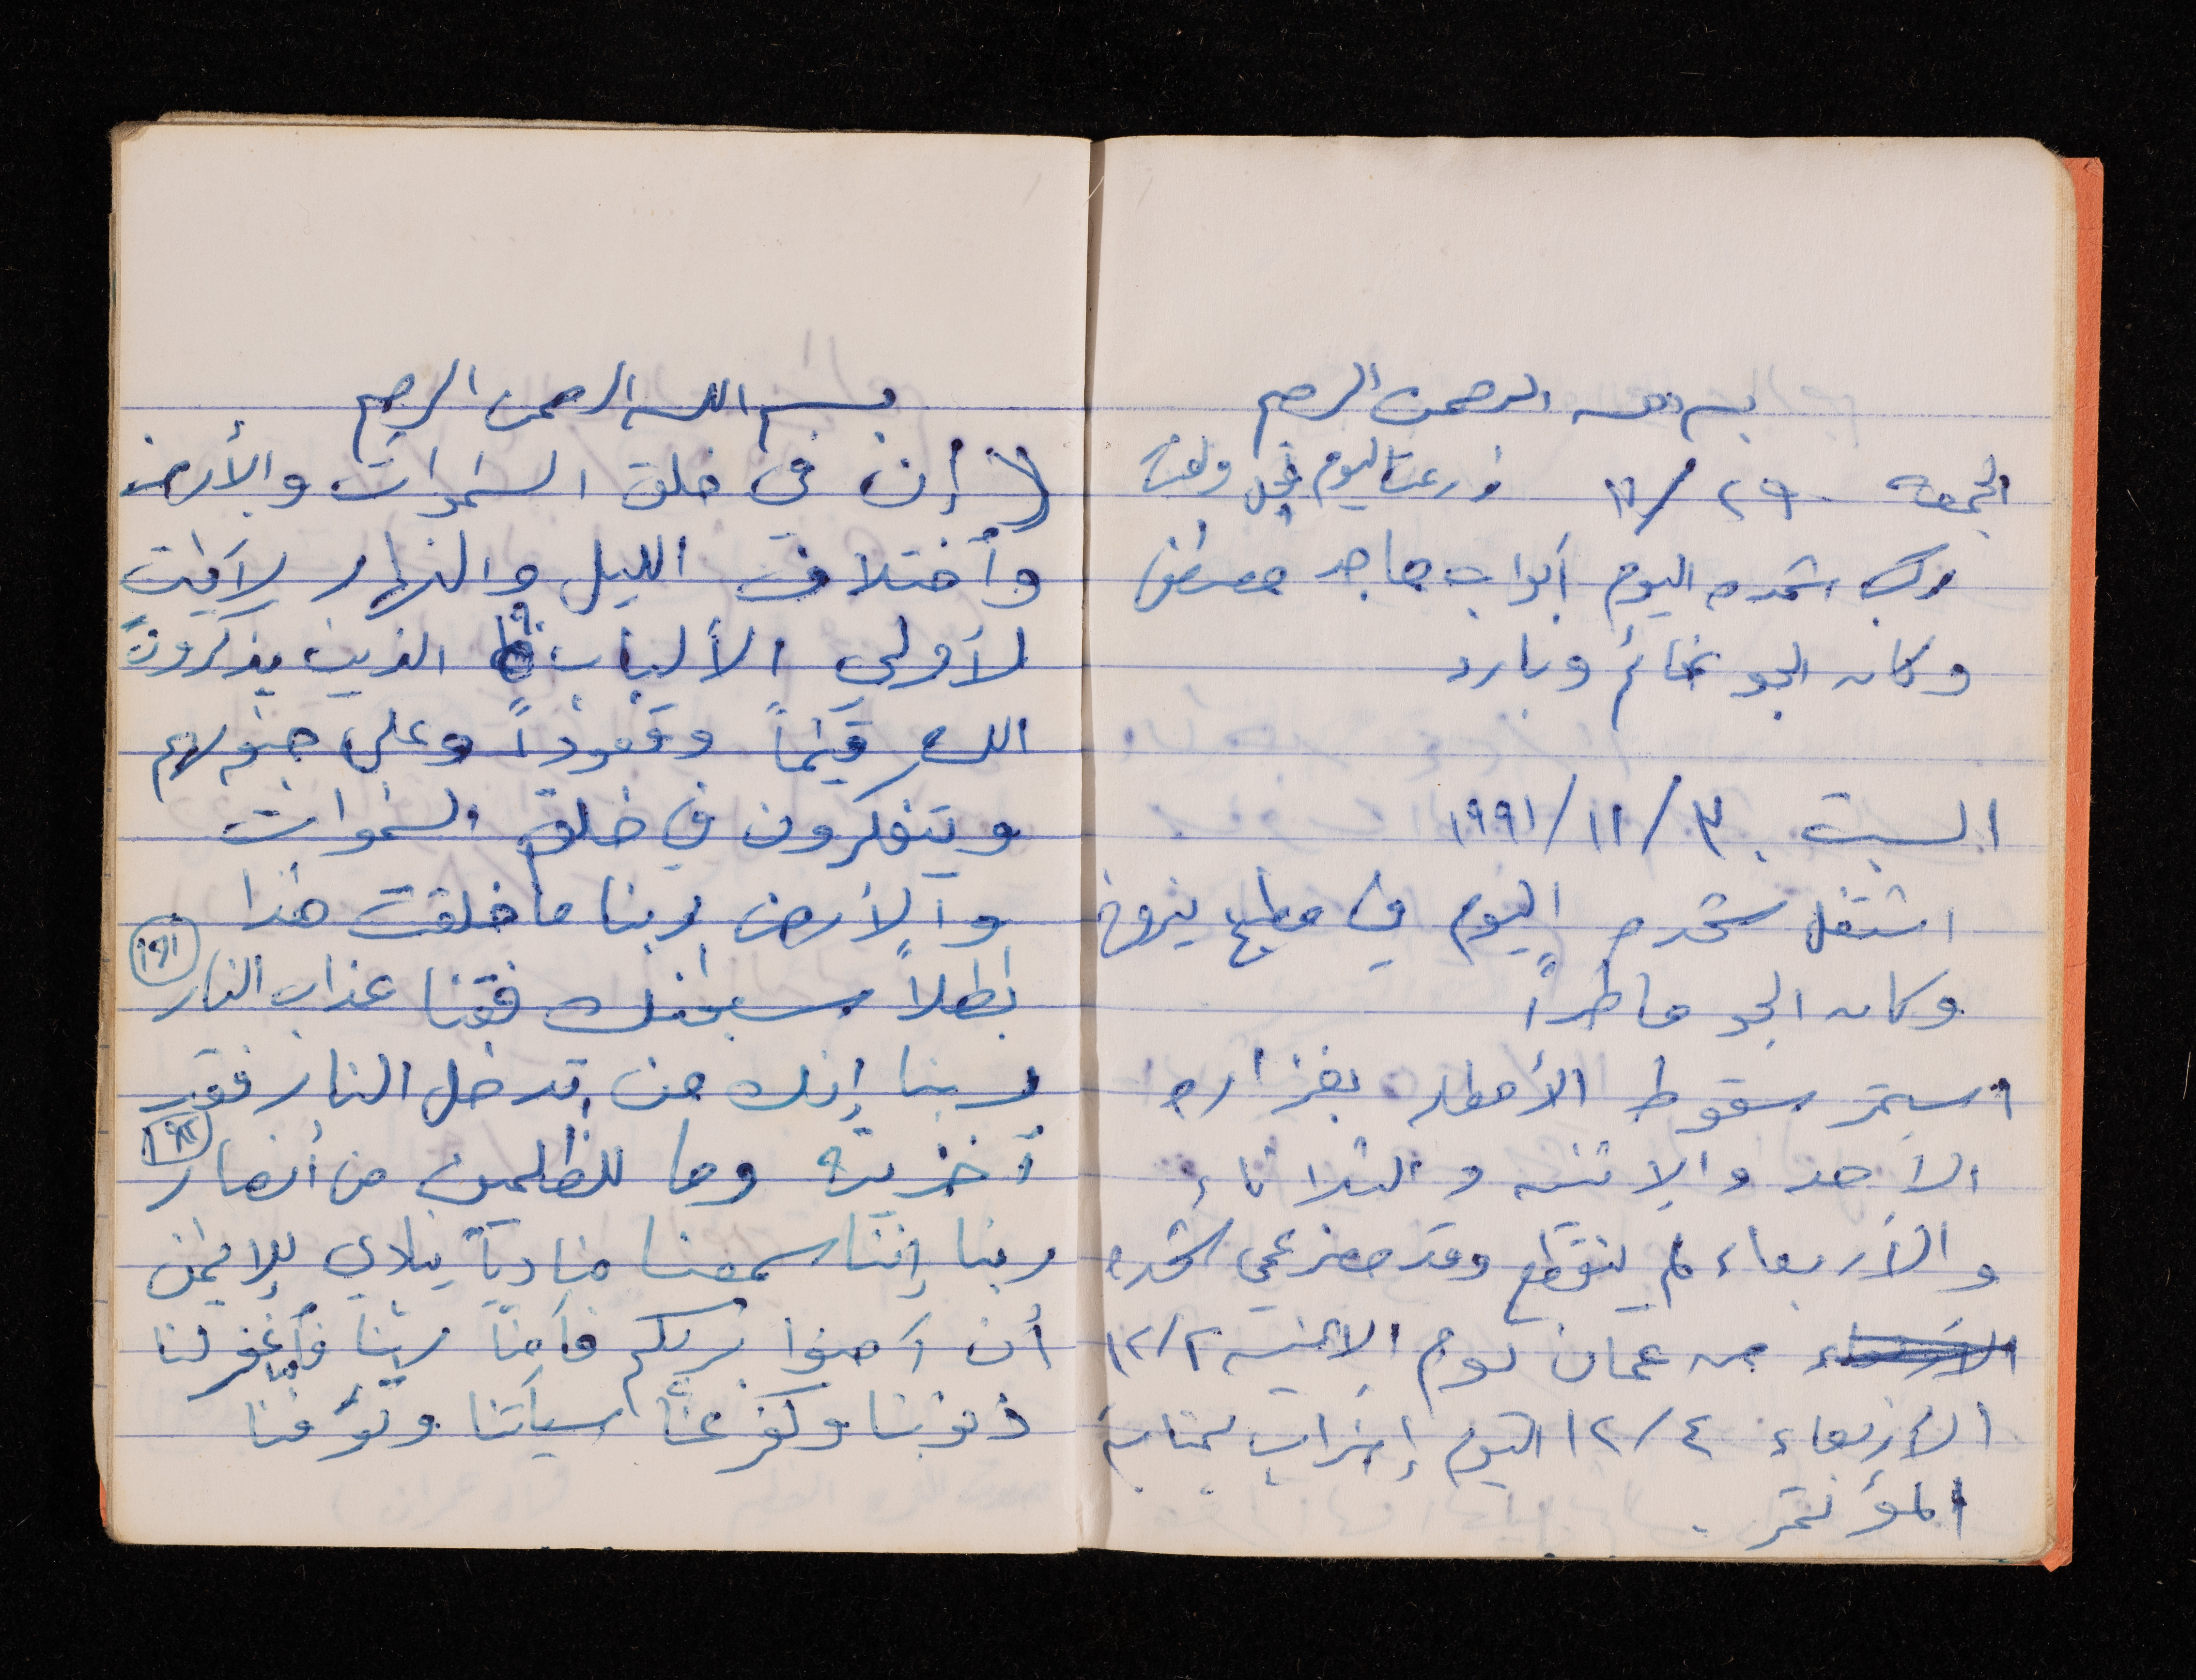 بسم الله الرحمن الرحيم
الجمعه ٢٩/١١ زرعت اليوم فجل ولفت
ركب شحده اليوم أبواب ماجد مصطفى
وكان الجو غائم وبارد
السبت ٣٠/١١/١٩٩١
اشتغل شحده اليوم في مطبخ
وكان الجو ماطراً
استمر سقوط الأمطار بغزاره
الأحد والإثنين والثلاثاء
والأربعاء لم ينقطع وقد حضر عمي شحده
من عمان يوم الاثنين ١٢/٢
الأربعاء ١٢/٤ اليوم إضراب بمناسبة
المؤتمر .
بسم الله الرحمن الرحيم
( إن في خلق السمٰوات والأرض
وٱختلاف الليل والنهار لآيٰت
لأولى الألباب ١٩٠ الذين يذكرون
الله قيٰماً وقعوداً وعلى جنوبهم
ويتفكرون في خلق السمٰوات
والأرض ربنا ما خلقت هٰذا
بٰطلاً سبحٰنك فقنا عذاب النار ١٩١
ربنا إنك من تدخل النار فقد
أخزيته وما للظٰلمين من أنصار ١٩٢
ربنا إننا سمعنا منادياً ينادي للإيمٰن
أن آمنوا بربكم فآمنا ربنا فٱغفر لنا
ذنوبنا وكفر عنا سيآتنا وتوفنا